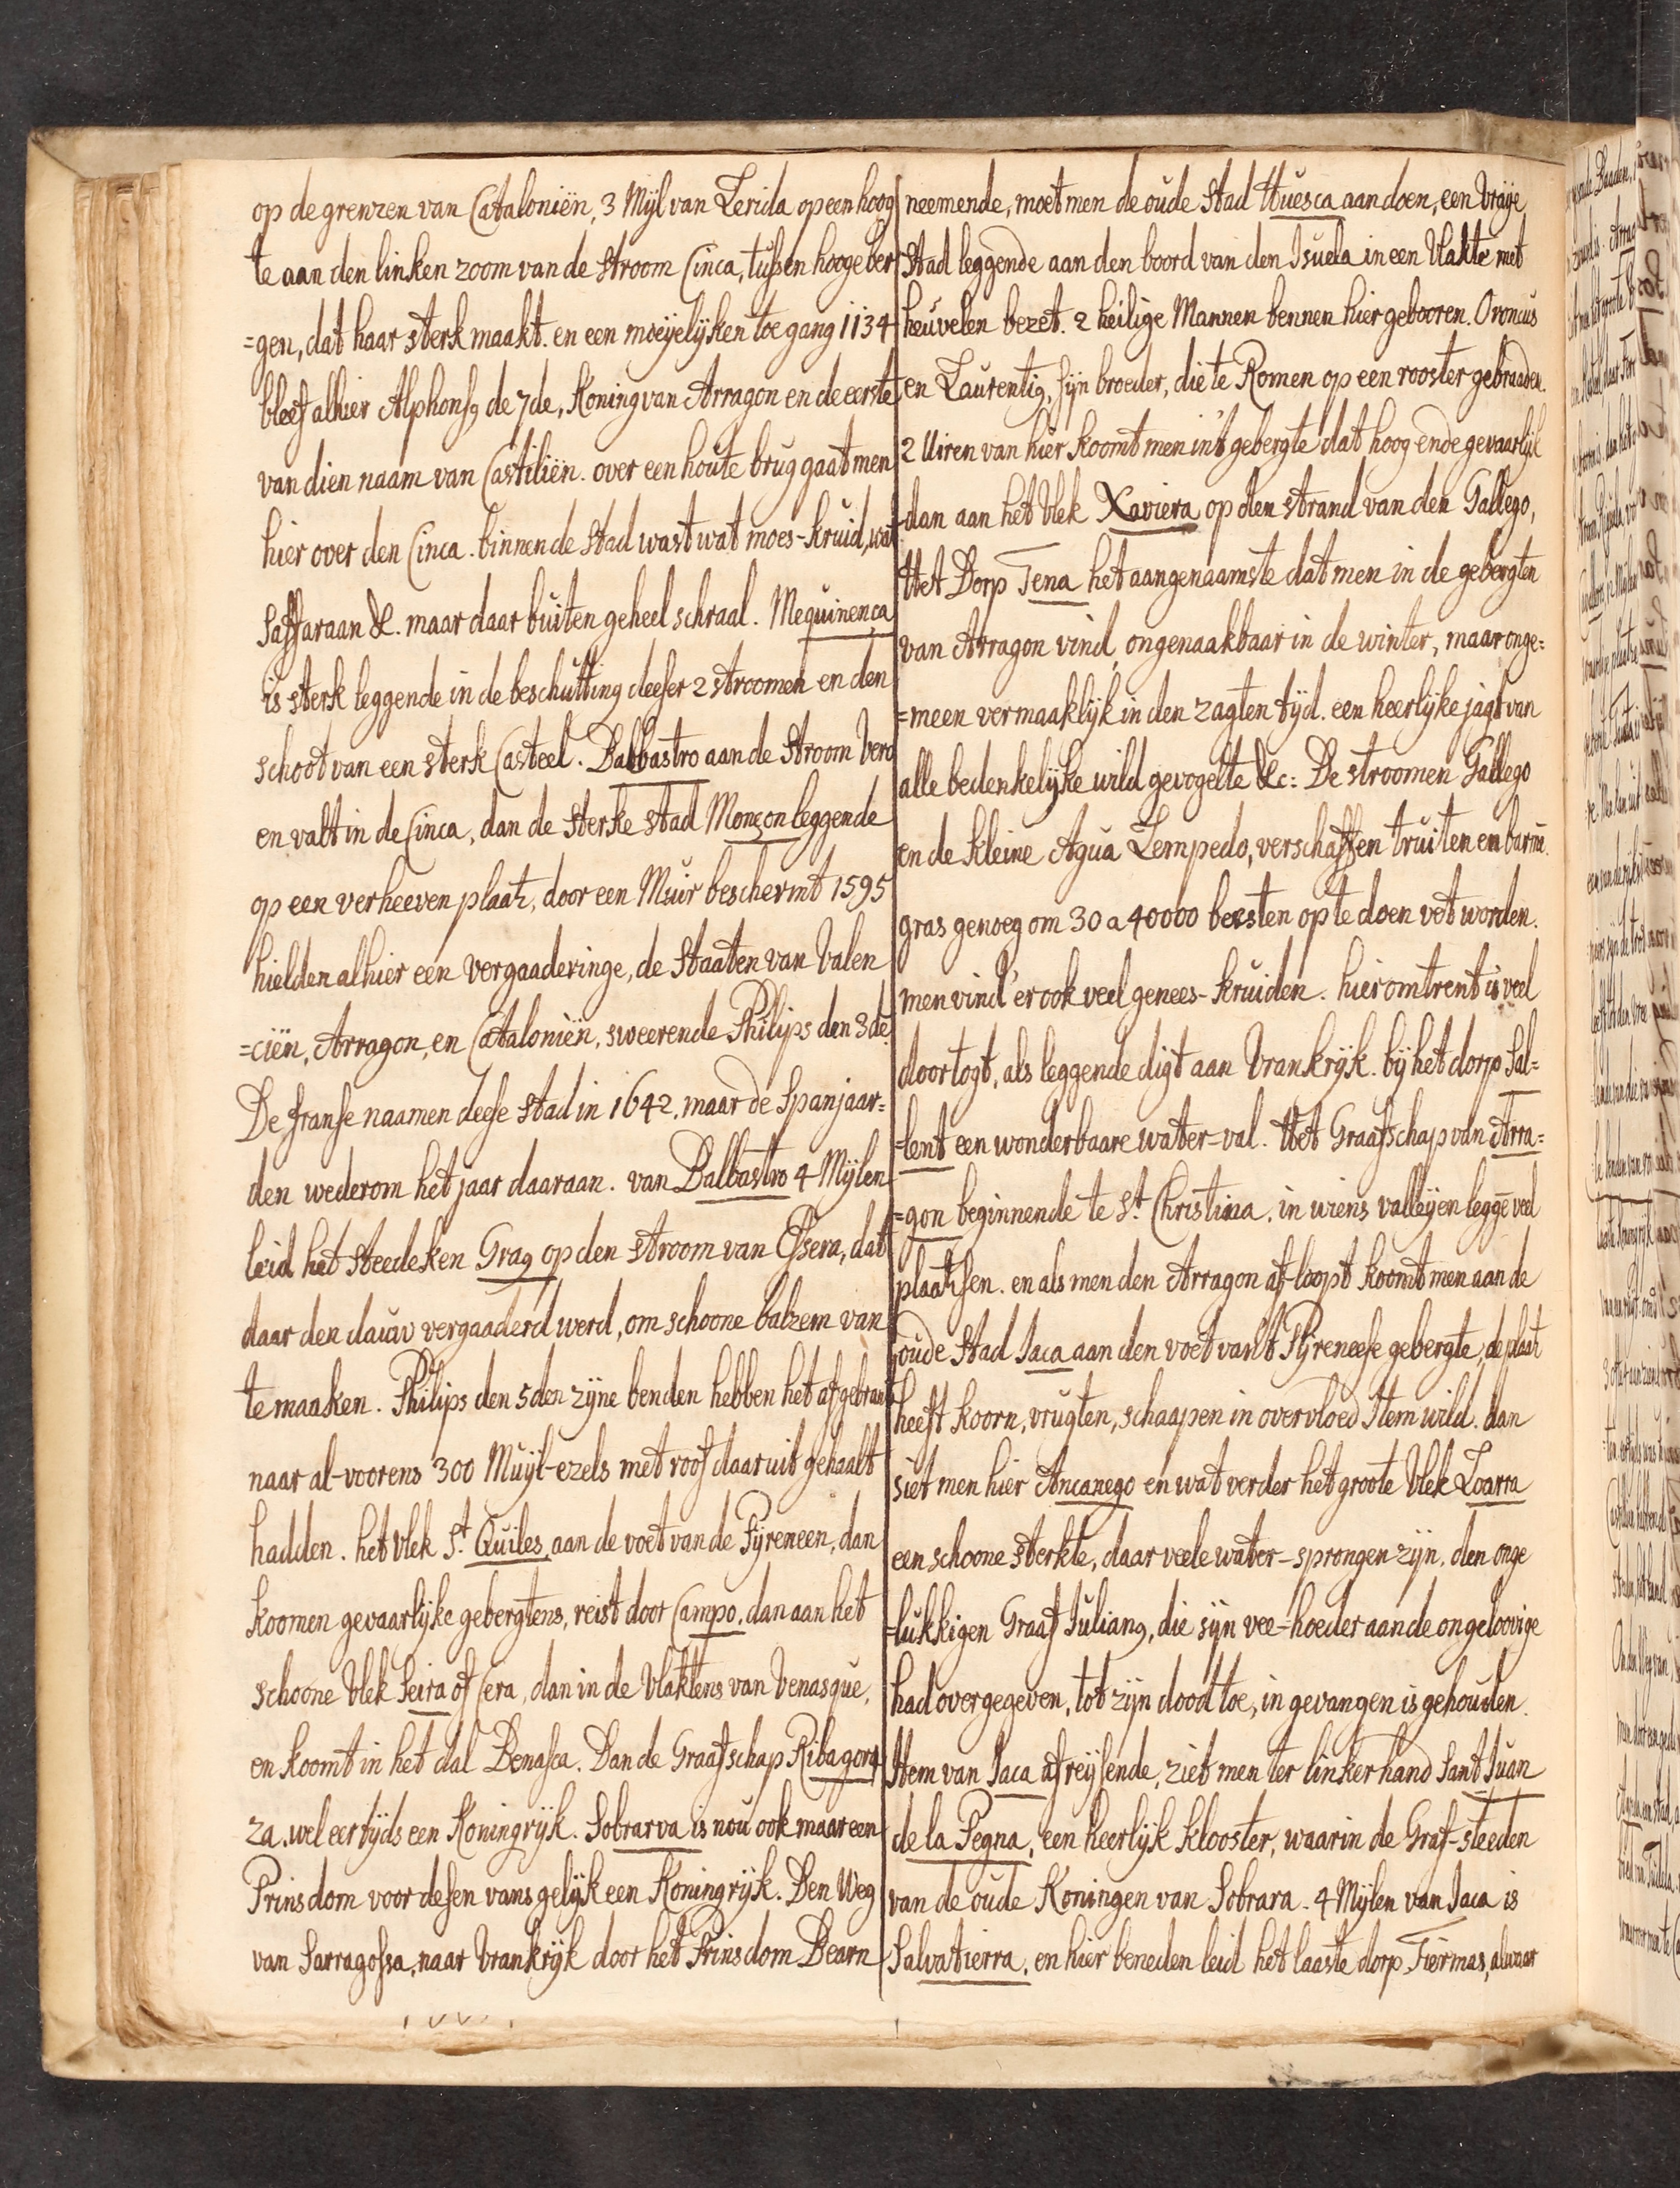 op de grenzen van Cataloniën, 3 Mijl van Lerida op een hoog
te aan den linken zoom van de Stroom Cinca, tußen hooge ber
=gen, dat haar sterk maakt. en een moeijelijken toegang 1134
bleef alhier Alphonsq de 7de, Koning van Arragon en de eerste
van dien naam van Castiliën. over een houte brug gaat men
hier over den Cinca. binnen de Stad wast wat moes-kruid, wat
Saffaraan &c. maar daar buiten geheel schraal. Mequinenca
is sterk leggende in de beschutting deeser 2 stroomen en den
schoot van een sterk Casteel. Balbastro aan de Stroom Vero
en valt in de Cinca, dan de sterke stad Monçon leggende
op een verheeven plaatz, door een Muir beschermt 1595
hielden alhier een vergaaderinge, de Staaten van Valen
=ciën, Arragon, en Cataloniën, sweerende Philips den 3de.
De franse naamen deese stad in 1642. maar de Spanjaar=
den wederom het jaar daaraan. van Balbastro 4 Mijlen
leid het Steedeken Graq op den stroom van Essera, dat
daar den dauw vergaaderd werd, om schoone balzem van
te maaken. Philips den 5den zijne benden hebben het afgebrant
naar al-voorens 300 Muijl-ezels met roof daar uit gehaalt
hadden. het vlek St. Quiles, aan de voet van de Pijreneen, dan
koomen gevaarlijke gebergtens, reist door Campo, dan aan het
schoone Vlek Seira of Cera, dan in de Vlaktens van Venasque,
en koomt in het dal Benasca. Dan de Graafschap Ribagorç
za. wel eertijds een Koningrijk. Sobrarva is nou ook maar een
Prinsdom voor desen vans gelijk een Koningrijk. Den Weg
van Sarragossa, naar Vrankrijk door het Prinsdom Bearn
neemende, moet men de oude Stad Huesca aandoen, een Vrije
Stad leggende aan den boord van den Isuela in een Vlakte met
heuvelen bezet. 2 heilige Mannen bennen hier gebooren. Oroncus
en Laurentiq, sijn broeder, die te Romen op een rooster gebraaden.
2 Uiren van hier koomt men in't gebergte dat hoog ende gevaarlijk
dan aan het Vlek Xaviera op den strand van den Gallego,
Het Dorp Tena het aangenaamste dat men in de gebergten
van Arragon vind, ongenaakbaar in de winter, maar onge=
=meen vermaaklijk in den zagten tijd. een heerlijke jagt van
alle bedenkelijke wild gevogelte &c: De stroomen Gallego
en de kleine Agua Lempedo, verschaffen truiten en barme.
gras genoeg om 30 a 40000 beesten op te doen vet worden.
men vind'er ook veel genees-kruiden. hieromtrent is veel
doortogt, als leggende digt aan Vrankrijk. bij het dorp Sal=
=lent een wonderbaare water-val. Het Graafschap van Arra=
=gon beginnende te St. Christina. in wiens valleijen legge veel
plaatsen. en als men den Arragon af-loopt koomt men aan de
oude Stad Jaca aan den voet van't Pijreneese gebergte, de plaatz
heeft koorn, vrugten, schaapen in overvloed Item wild. dan
siet men hier Ancanego en wat verder het groote Vlek Loarra
een schoone sterkte, daar veele water-sprongen zijn, den onge
=lukkigen Graaf Julianq, die sijn vee-hoeder aan de ongeloovige
had overgegeven, tot zijn dood toe, in gevangen is gehouden.
Item van Jaca afreijsende, ziet men ter linkerhand Sant Juan
de la Pegna, een heerlijk klooster, waarin de Graf-steeden
van de oude Koningen van Sobrara. 4 Mijlen van Jaca is
Salvatierra, en hier beneden leid het laaste dorp Tiermas, alwaar